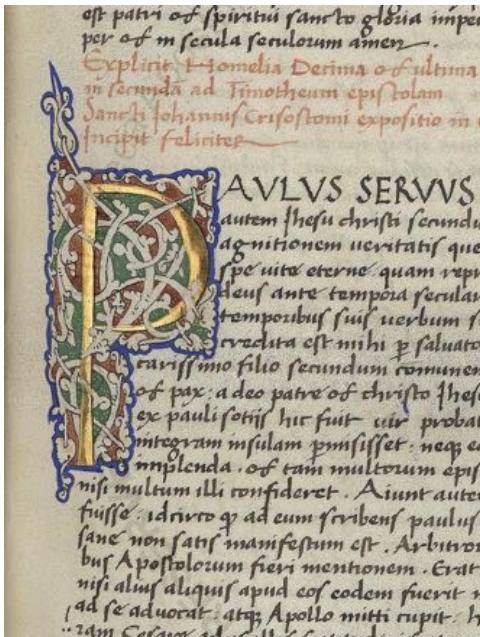 est patri & spiritui sancto gloria impe
per & in secula seculorum amen.
Explicit Homelia Decima & ultima
in secunda ad Timotheum epistolam
Sancti Johannis Crisostomi expositio in
Incipit feliciter
PAULUS SERVUS
autem Jhesu christi secundu
agnitionem veritatis que
spe vite eterne. quam repr
deus ante tempora secular
temporibus suis verbum s
credita est mihi p̱ salvato
carissimo filio secundum comunem
& pax: a deo patre & christo Jhesu
ex pauli sotiis hic fuit vir probat
integram insulam p̱misisset. neq̱ e
implenda. & tam multorum epis
nisi multum illi confideret. Aiunt aute
fuisse. idcirco ꝙ ad eum scribens paulus
sane non satis manifestum est. Arbitror
bus Apostolorum fieri mentionem. Erat
nisi alius aliquis apud eos eodem fuerit n
ad se advocat. atq̱ Apollo mitti cupit. h